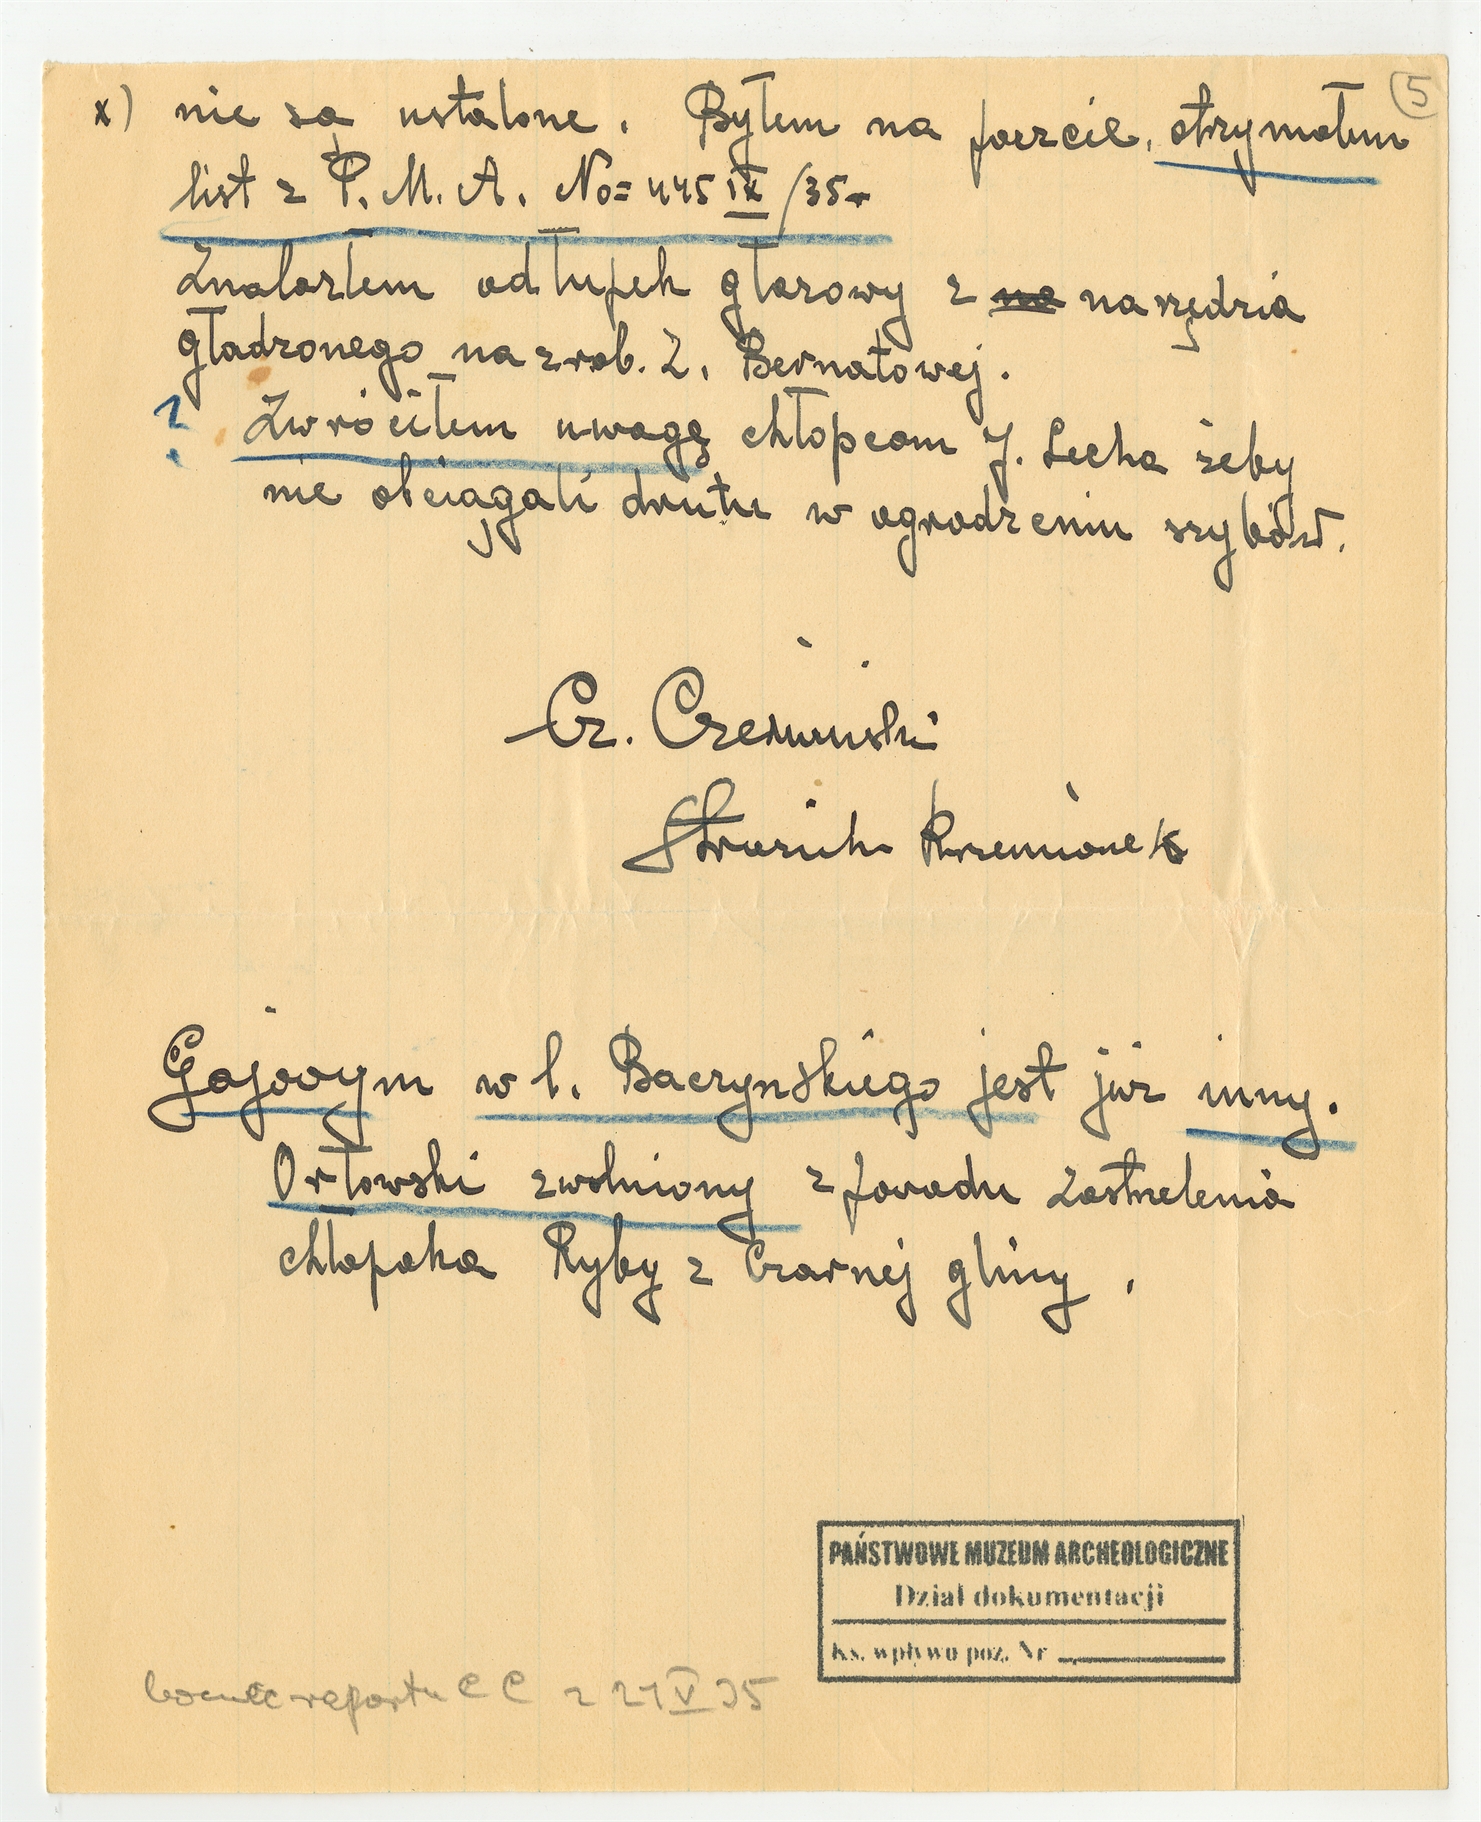 5
x) nie są ustalone. Byłem na poczcie, otrzymałem
list z P. M. A. No= 445 IX /35r
Znalazłem odłupek głazowy z na narzędzia
gładzonego na zrob. Z. Bernatowej.
? Zwróciłem uwagę chłopcom J. Lecha żeby
nie obciągali drutu w ogrodzeniu szybów.
Cz. Czerwiński
Strażnik Krzemionek
Gajowym w l. Baczyńskiego jest już inny.
Orłowski zwolniony z powodu zastrzelenia
chłopaka Ryby z Czarnej gliny.
PAŃSTWOWE MUZEUM ARCHEOLOGICZNE
Dział dokumentacji
Ks. wpływu poz. Nr
koniec raportu C C z 21 V 35